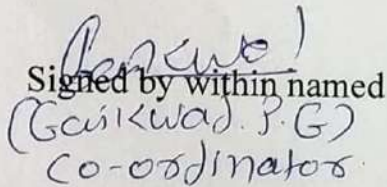 Signed by within named
(Gaikwad. P. G)
Co-ordinator.